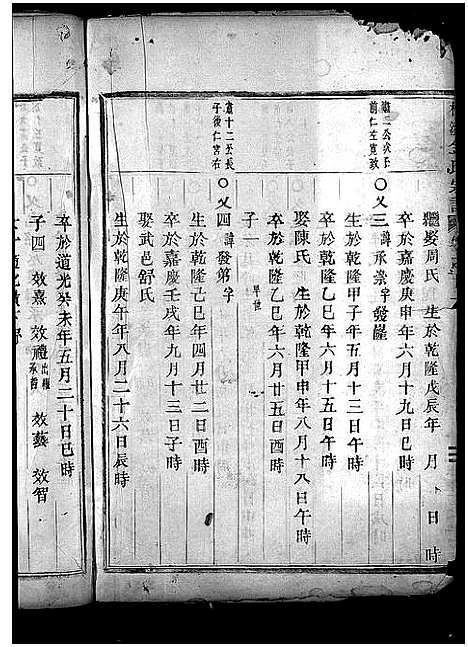 繼娶周氏 生於乾隆戊辰年 月 日 時
卒於嘉慶庚申年六月十九日巳時
〇乂三 諱承崇字發崖
前仁左寬敦
生於乾隆甲子年五月十三日午時
卒於乾隆乙巳年六月十五日午時
娶陳氏 生於乾隆甲申年八月十八日午時
卒於乾隆乙巳年六月廿五日酉時
子一 早世
十二公長
子後仁宮右
〇乂四 諱發弟字
生於乾隆己巳年四月廿二日酉時
卒於嘉慶壬戌年九月十三日子時
娶武邑舒氏
生於乾隆庚午年八月二十六日辰時
卒於道光癸未年五月二十日巳時
子四 效熹 效禮出繼承 效藝 效智